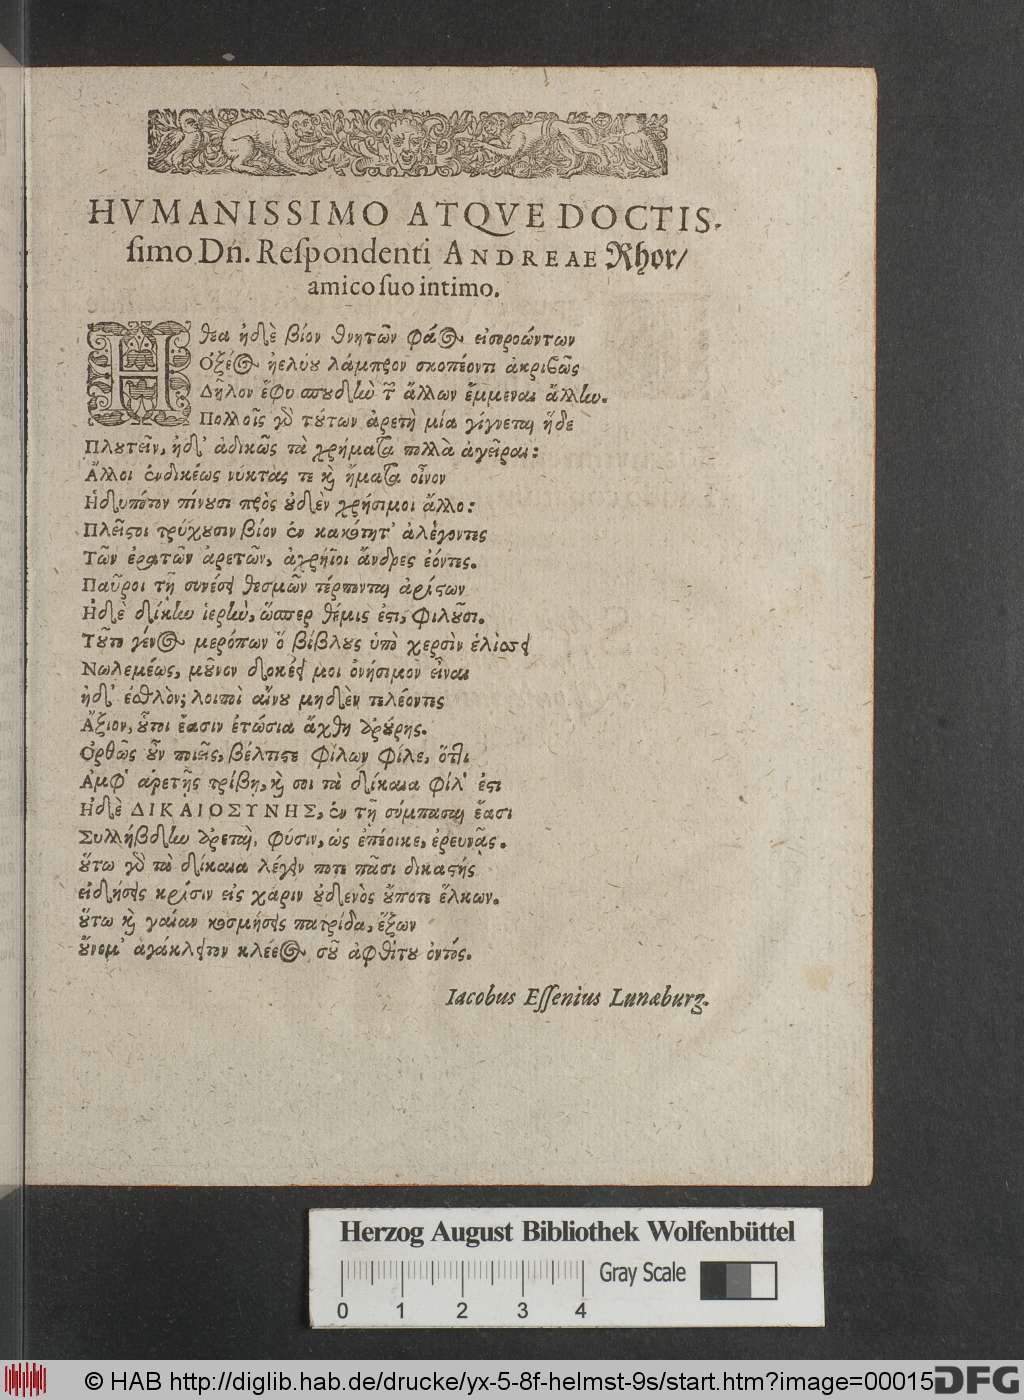 HVMANISSIMO ATQVE DOCTIS-
ſimo Dn. Reſpondenti ANDREAE Rhor/
amico ſuo intimo.
Ηθεα ἠδὲ βίον θνητῶν φάος εἰσοροώντων
Ὀξέος ἠελίου λάμπρον σκοπέοντι ἀκριβῶς
Δῆλον ἔφυ σπουδὴν τῶν ἄλλων ἔμμεναι ἄλλην.
Πολλοῖς γὸ τούτων ἀρετὴ μία γίγνεται ἥδε
Πλουτεῖν, ἠδ' ἀδικῶς τὰ χρήματα πολλὰ ἀγεῖραι:
Ἄλλοι ἐνδικέως νύκτας τε καὶ ἤματα οἶνον
Ἡδυπότον πίνουσι πρὸς οὐδὲν χρήσιμοι ἄλλο:
Πλεῖστοι τρύχουσιν βίον ἐν κακότητ' ἀλέγοντες
Τῶν ἐρατῶν ἀρετῶν, ἀχρήϊοι ἄνδρες ἐόντες.
Παῦροι τῇ συνέσει θεσμῶν τέρπονται ἀρίστων
Ἠδὲ δίκην ἱερὴν, ὥσπερ θέμις ἐστι, φιλοῦσι.
Τοῦτο γένος μερόπων ὃ βίβλους ὑπὸ χερσὶν ἑλίσσει
Νωλεμέως, μοῦνον δοκέει μοι ὀνήσιμον εἶναι
ἠδ' ἐσθλὸν; λοιποὶ αἴνου μηδὲν τελέοντες
Ἄξιον, οὗτοι ἔασιν ἐτώσια ἄχθη ἀρούρης.
Ὀρθῶς οὖν ποιεῖς, βέλτιστε φίλων φίλε, ὅττι
Ἀμφ' ἀρετῆς τρίβῃ, καὶ σοι τὰ δίκαια φίλ' ἐστι
Ἠδὲ ΔΙΚΑΙΟΣΥΝΗΣ, ἐν τῇ σύμπασαι ἔασι
Συλλήβδην ἀρεταὶ, φύσιν, ὡς ἐπέοικε, ἐρευνᾷς.
οὕτω γὸ τὰ δίκαια λέγειν ποτε πᾶσι δικαστής
εἰδήσεις κρίσιν εἰς χάριν οὐδενὸς οὔποτε ἕλκων.
οὕτω καὶ γαῖαν κοσμήσεις πατρίδα, ἕξων
οὔνομ' ἀγάκλειτον κλέεος σοῦ ἀφθίτου ὀντός.
Iacobus Eſſenius Lunæburg.
Herzog August Bibliothek Wolfenbüttel
Gray Scale
0 1 2 3 4
© HAB http://diglib.hab.de/drucke/yx-5-8f-helmst-9s/start.htm?image=00015
DFG